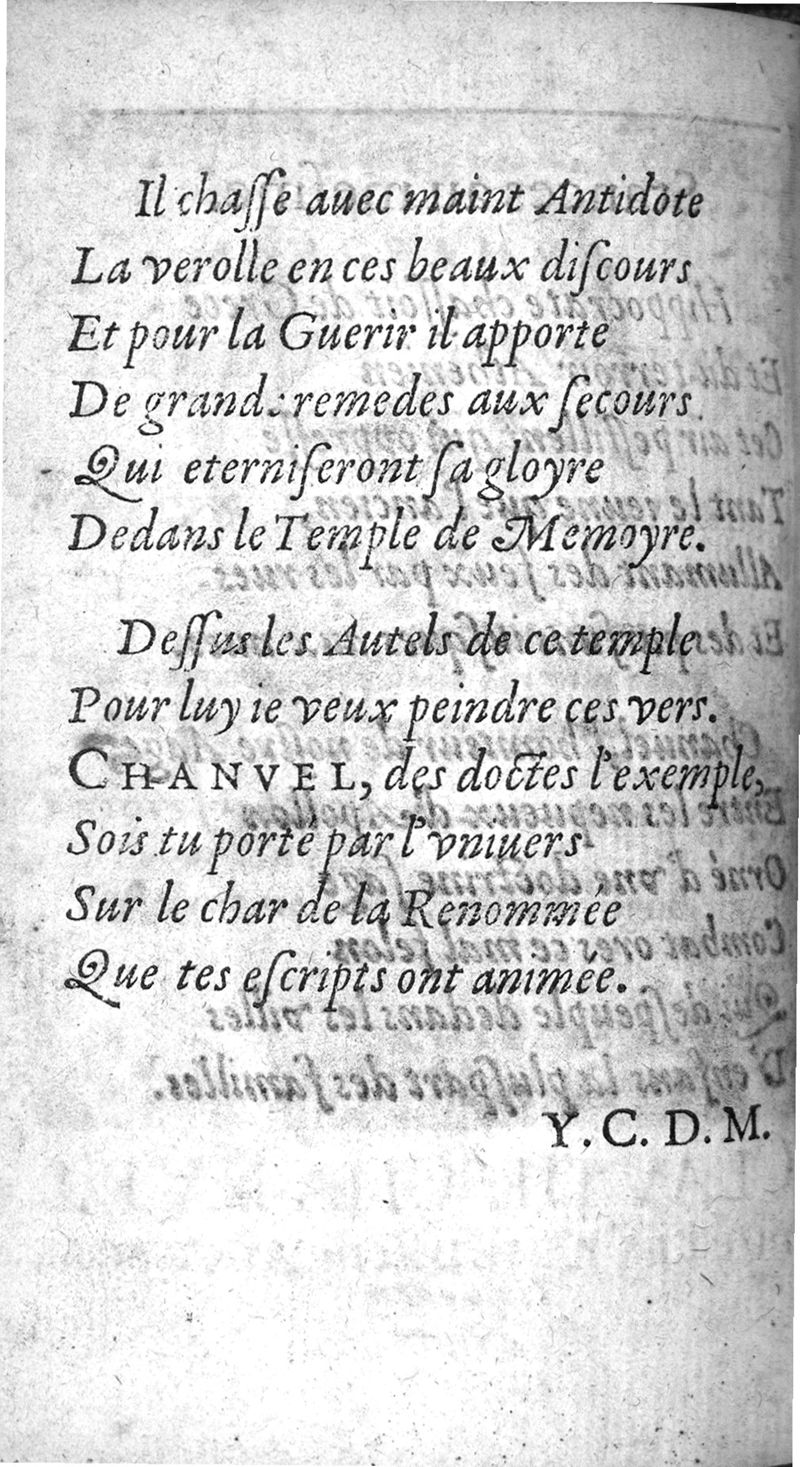 Il chaſſe auec maint Antidote
La verolle en ces beaux diſcours
Et pour la Guerir il apporte
De grands remedes aux ſecours
Qui eterniſeront ſa gloyre
Dedans le Temple de Memoyre.
Deſſus les Autels de ce temple
Pour luy ie veux peindre ces vers.
CHANVEL, des doctes l'exemple,
Sois tu porté par l'vniuers
Sur le char de la Renommée
Que tes eſcripts ont animée.
Y. C. D. M.